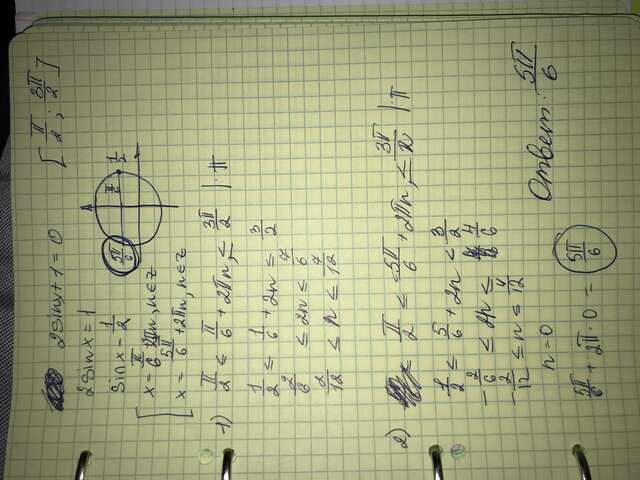 2sinx+1=0 [π/2; 3π/2]
2sinx=1
sinx=1/2
[x=π/6+2πn, n∈z
x=5π/6+2πn, n∈z
5π/6 π/6 1/2
1) π/2 ≤ π/6+2πn, ≤ 3π/2 | :π
1/2 ≤ 1/6+2n ≤ 3/2
2/6 ≤ 2n ≤ 7/6
2/12 ≤ n ≤ 7/12
2) π/2 ≤ 5π/6+2πn, ≤ 3π/2 | π
1/2 ≤ 5/6+2n ≤ 3/2
-2/6 ≤ 2n ≤ 4/6
-2/12 ≤ n ≤ 4/12
n=0
5π/6+2π·0= 5π/6
Ответ: 5π/6